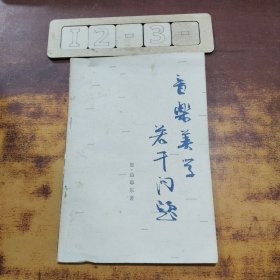 12-3-
音樂美学
若干问题